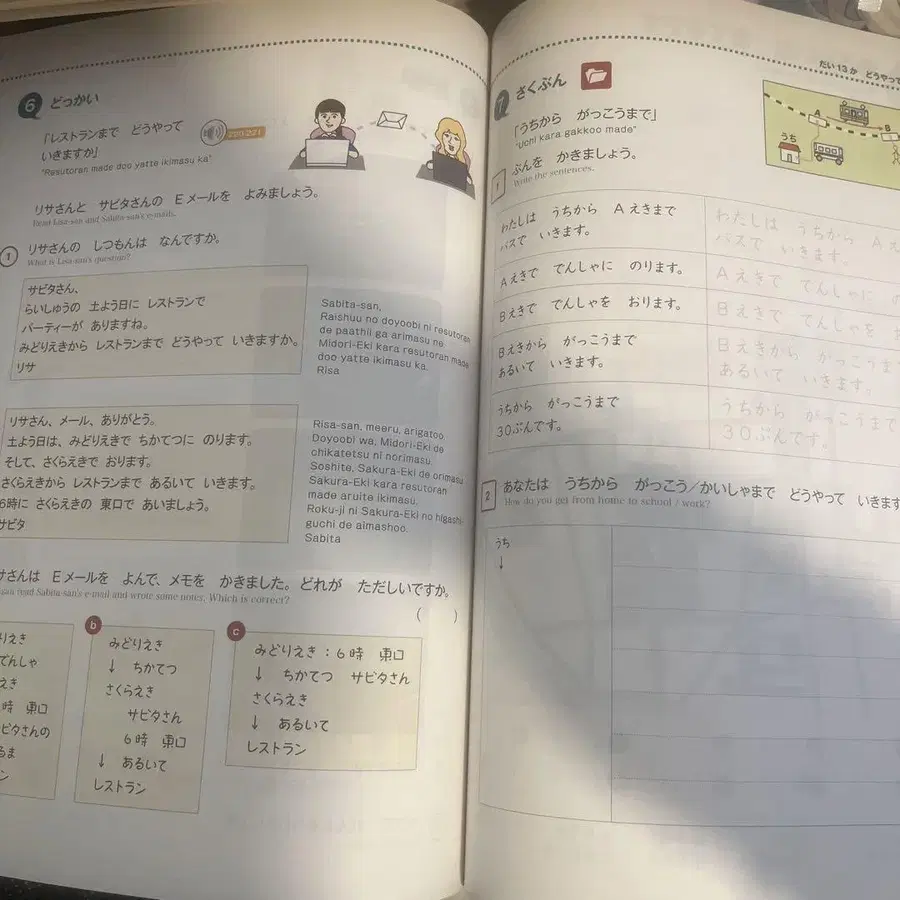 6 どっかい
「レストランまで どうやって
いきますか」
"Resutoran made doo yatte ikimasu ka"
220-221
リサさんと サビタさんの Eメールを よみましょう。
Read Lisa-san and Sabita-san's e-mails.
1 リサさんの しつもんは なんですか。
What is Lisa-san's question?
サビタさん、
らいしゅうの 土よう日に レストランで
パーティーが ありますね。
みどりえきから レストランまで どうやって いきますか。
リサ
Sabita-san,
Raishuu no doyoobi ni resutoran
de paathii ga arimasu ne.
Midori-Eki kara resutoran made
doo yatte ikimasu ka.
Risa
リサさん、メール、ありがとう。
土よう日は、みどりえきで ちかてつに のります。
そして、さくらえきで おります。
さくらえきから レストランまで あるいて いきます。
6時に さくらえきの 東口で あいましょう。
サビタ
Risa-san, meeru, arigatoo.
Doyoobi wa, Midori-Eki de
chikatetsu ni norimasu.
Soshite, Sakura-Eki de orimasu
Sakura-Eki kara resutoran
made aruite ikimasu.
Roku-ji ni Sakura-Eki no higashi-
guchi de aimashoo.
Sabita
サさんは Eメールを よんで、メモを かきました。どれが ただしいですか。
read Sabita-san's e-mail and wrote some notes. Which is correct?
( )
りえき
でんしゃ
えき
時 東口
ビタさんの
るま
ン
b
みどりえき
↓ ちかてつ
さくらえき
サビタさん
6時 東口
↓ あるいて
レストラン
c
みどりえき：6時 東口
↓ ちかてつ サビタさん
さくらえき
↓ あるいて
レストラン
だい13か どうやって
7 さくぶん
「うちから がっこうまで」
"Uchi kara gakkoo made"
1 ぶんを かきましょう。
Write the sentences.
うち
A
B
わたしは うちから Aえきまで
バスで いきます。
わたしは うちから Aえ
バスで いきます。
Aえきで でんしゃに のります。
Aえきで でんしゃに の
Bえきで でんしゃを おります。
Bえきで でんしゃを お
Bえきから がっこうまで
あるいて いきます。
Bえきから がっこうま
あるいて いきます。
うちから がっこうまで
30ぷんです。
うちから がっこうまで
30ぷんです。
2 あなたは うちから がっこう/かいしゃまで どうやって いきます
How do you get from home to school / work?
うち
↓